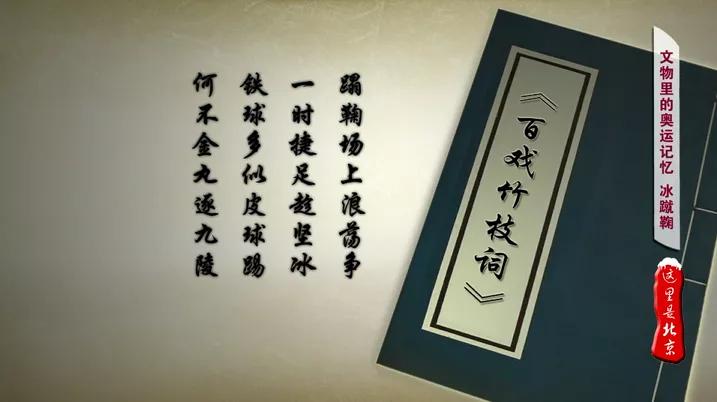 蹋鞠场上浪荡争
一时捷足趁坚冰
铁球多似皮球踢
何不金丸逐九陵
《百戏竹枝词》
文物里的奥运记忆 冰蹴鞠
这里是北京